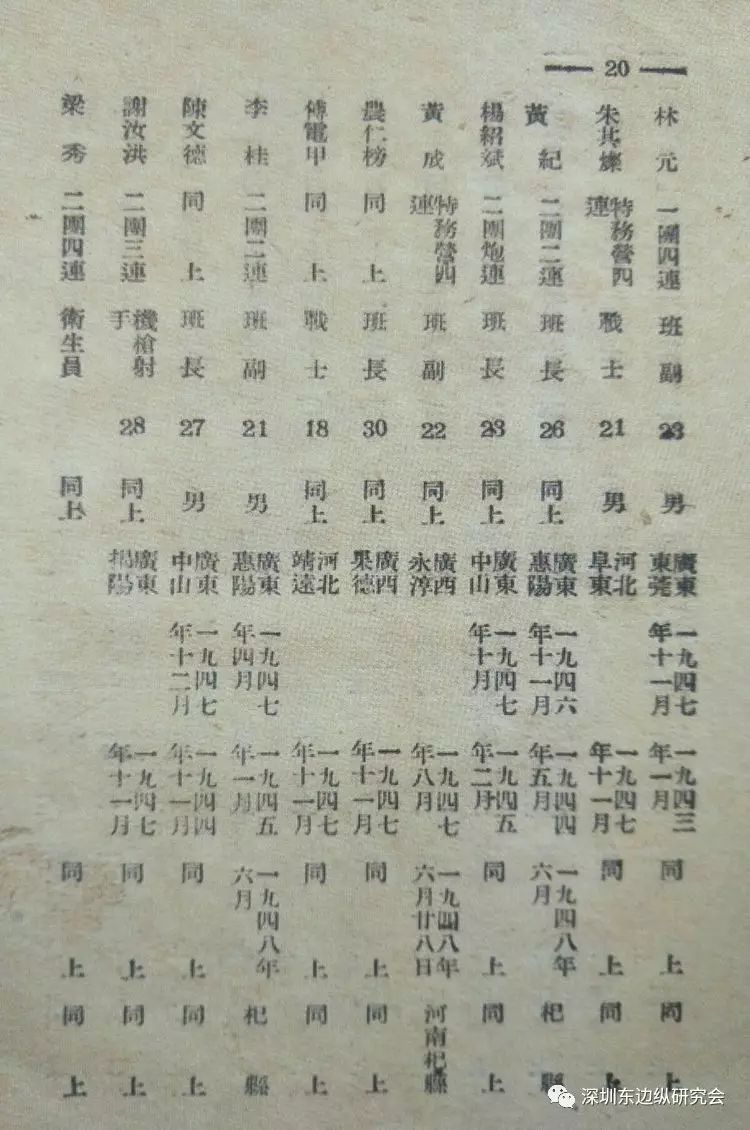 20
林元 一團四連 班副 23 男 廣東東莞 一九四七年十一月 一九四三年一月 同上 同上
朱其燦 特務營四連 戰士 21 男 河北阜東 一九四七年十一月 同上 同上
黃紀 二團二連 班長 26 同上 廣東惠陽 一九四六年十一月 一九四四年五月 一九四八年六月 杞縣
楊紹斌 二團炮連 班長 23 同上 廣東中山 一九四七年十月 一九四五年二月 同上 同上
黃成 特務營四連 班副 22 同上 廣西永淳 一九四七年八月 一九四八年六月廿八日 河南杞縣
農仁榜 同上 班長 30 同上 廣西果德 一九四七年十一月 同上 同上
傅電甲 同上 戰士 18 同上 河北靖遠 一九四七年十一月 同上 同上
李桂 二團二連 班副 21 男 廣東惠陽 一九四七年四月 一九四五年一月 一九四八年六月 杞縣
陳文德 同上 班長 27 男 廣東中山 一九四七年十二月 一九四四年十一月 同上 同上
謝汝洪 二團三連 機槍射手 28 同上 廣東揭陽 一九四七年十一月 同上 同上
梁秀 二團四連 衛生員 同上 同上 同上
深圳东边纵研究会